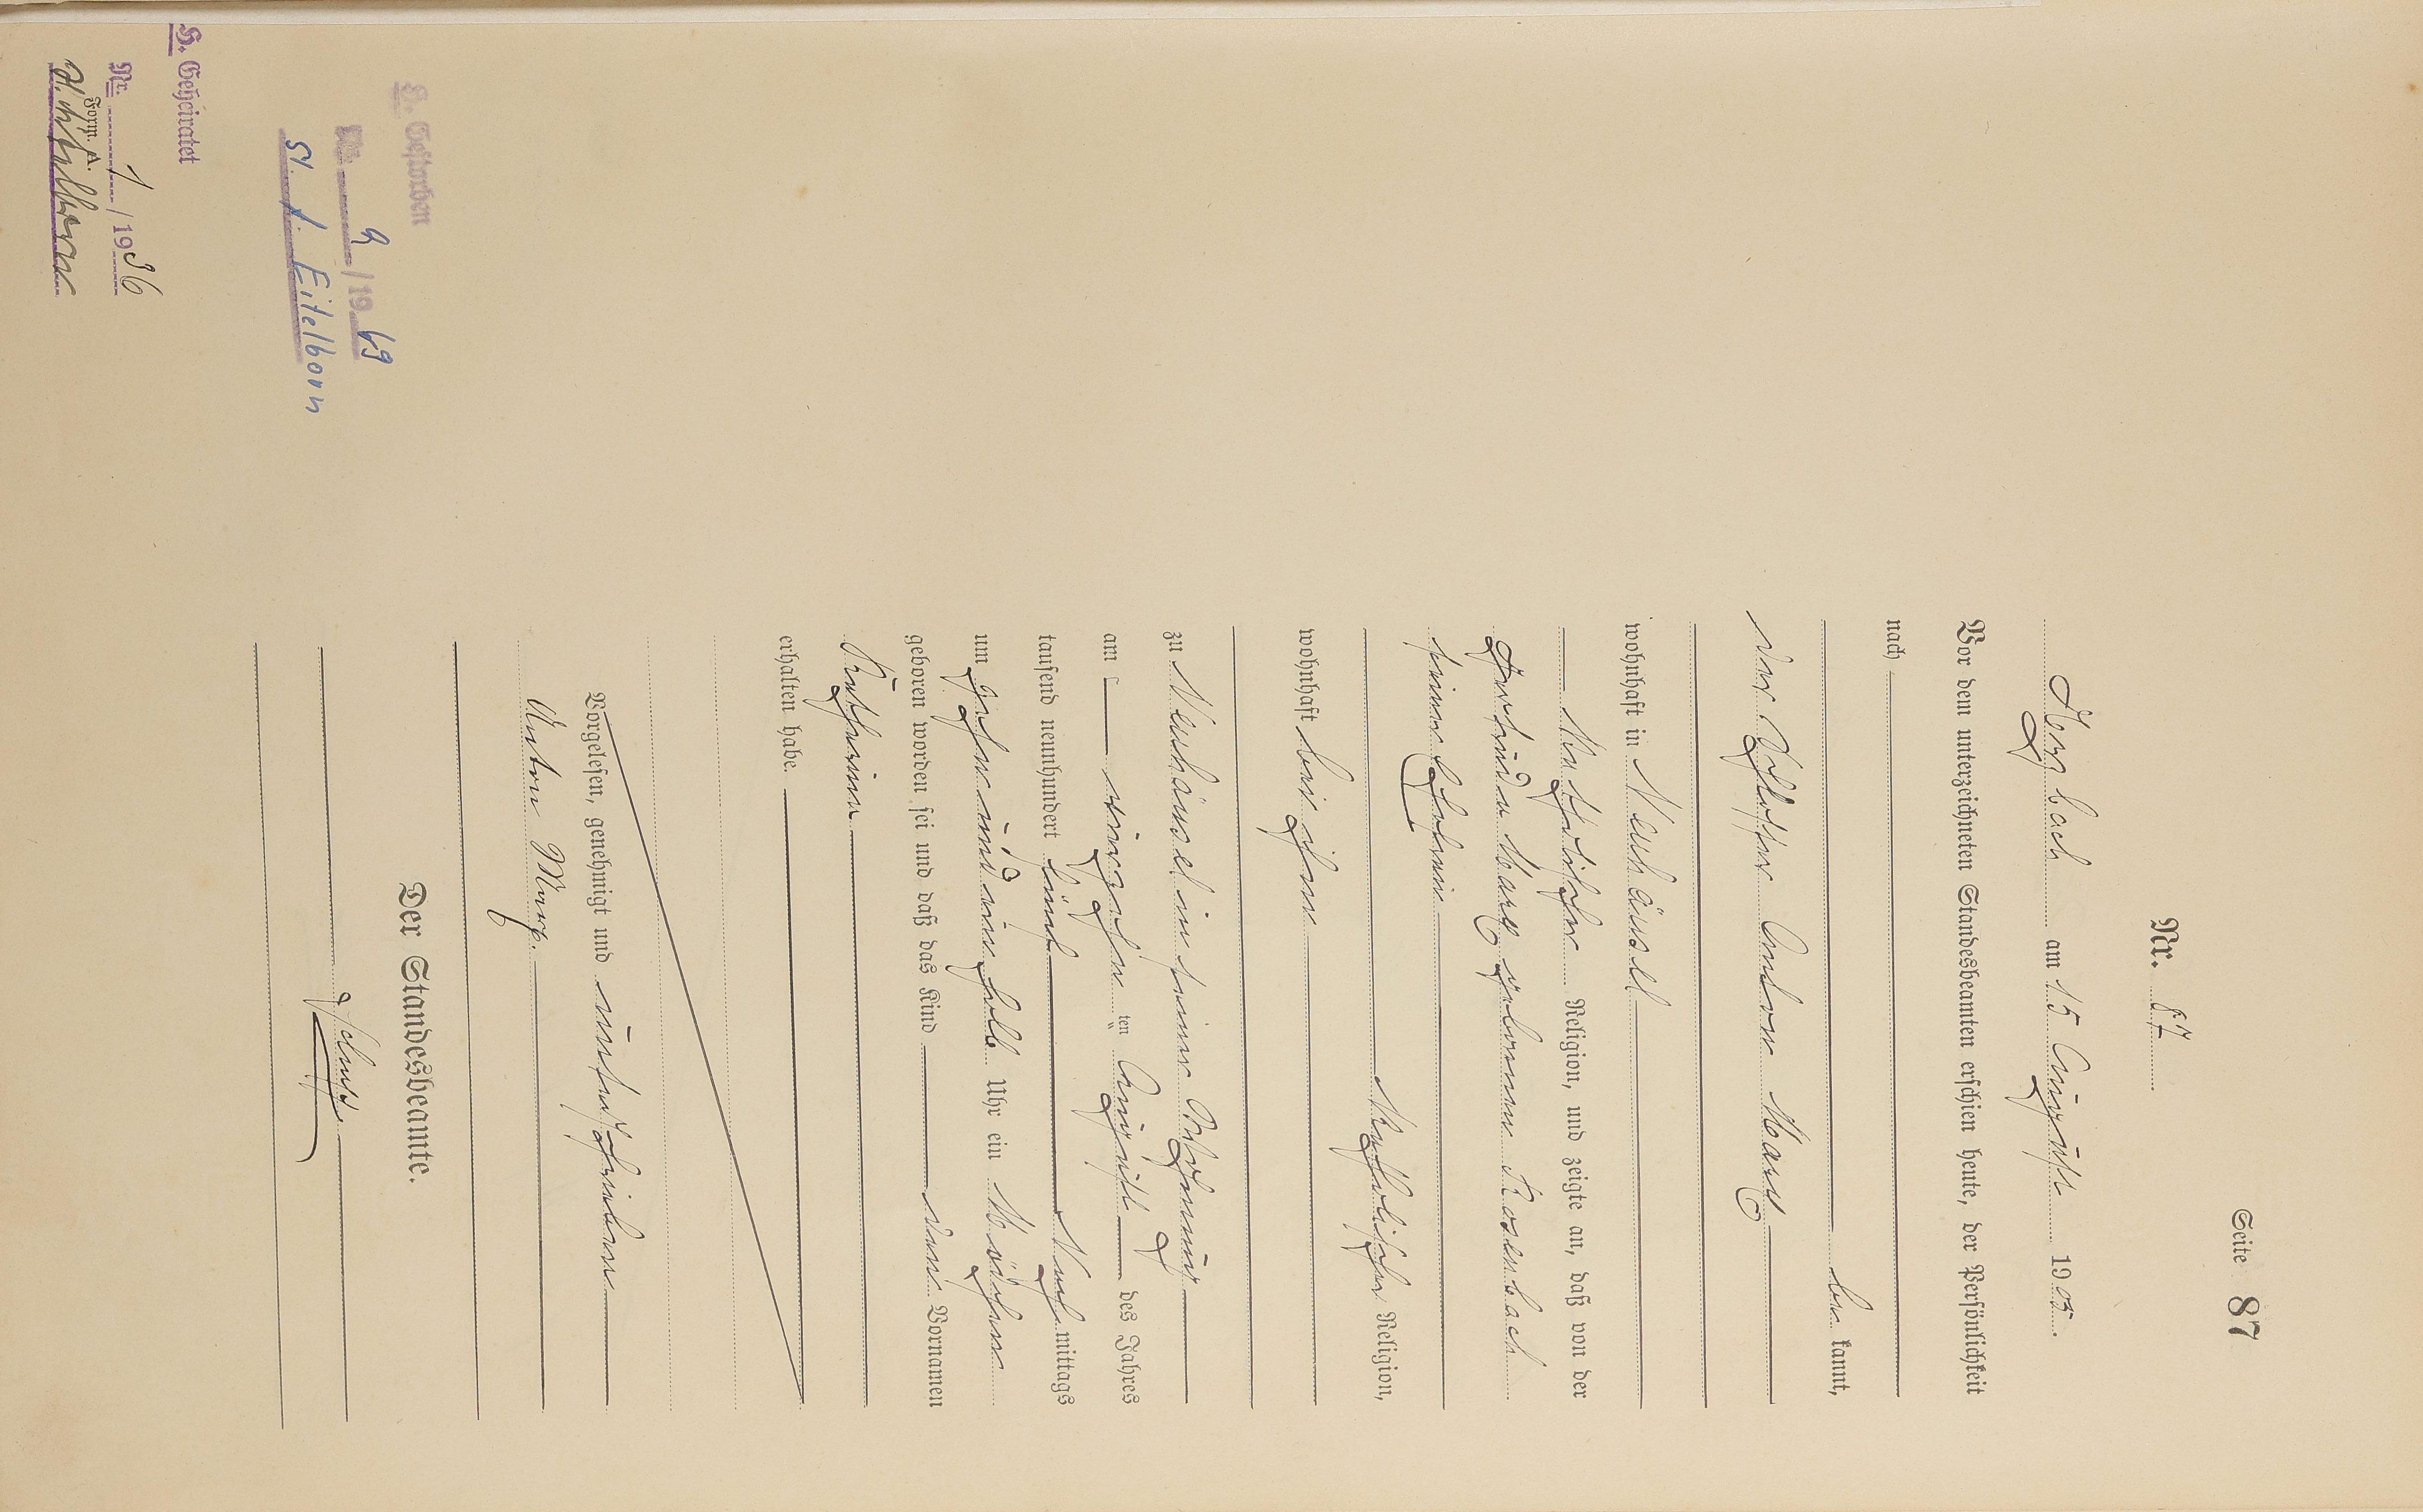 Seite 87
Nr. 87
Horbach am 15 August 1905.
Vor dem unterzeichneten Standesbeamten erschien heute, der Persönlichkeit
nach
be kannt,
der Anton Marx
wohnhaft in Neuhäusel
katholischer Religion, und zeigte an, daß von der
Gertruda Marx geborenen Rosenbach
seiner Ehefrau
katholischer Religion,
wohnhaft bei ihm
zu Neuhäusel in seiner Wohnung
am vierzehn ten August des Jahres
tausend neunhundert fünf Nach mittags
um zehn und ein halb Uhr ein Mädchen
geboren worden sei und daß das Kind den Vornamen
Katharina
erhalten habe.
Vorgelesen, genehmigt und unterschrieben
Anton Marx.
Der Standesbeamte.
G. Gestorben
Nr. 9 / 19 69
St. A. Eitelborn
H. Geheiratet
Nr. 1 / 19 36